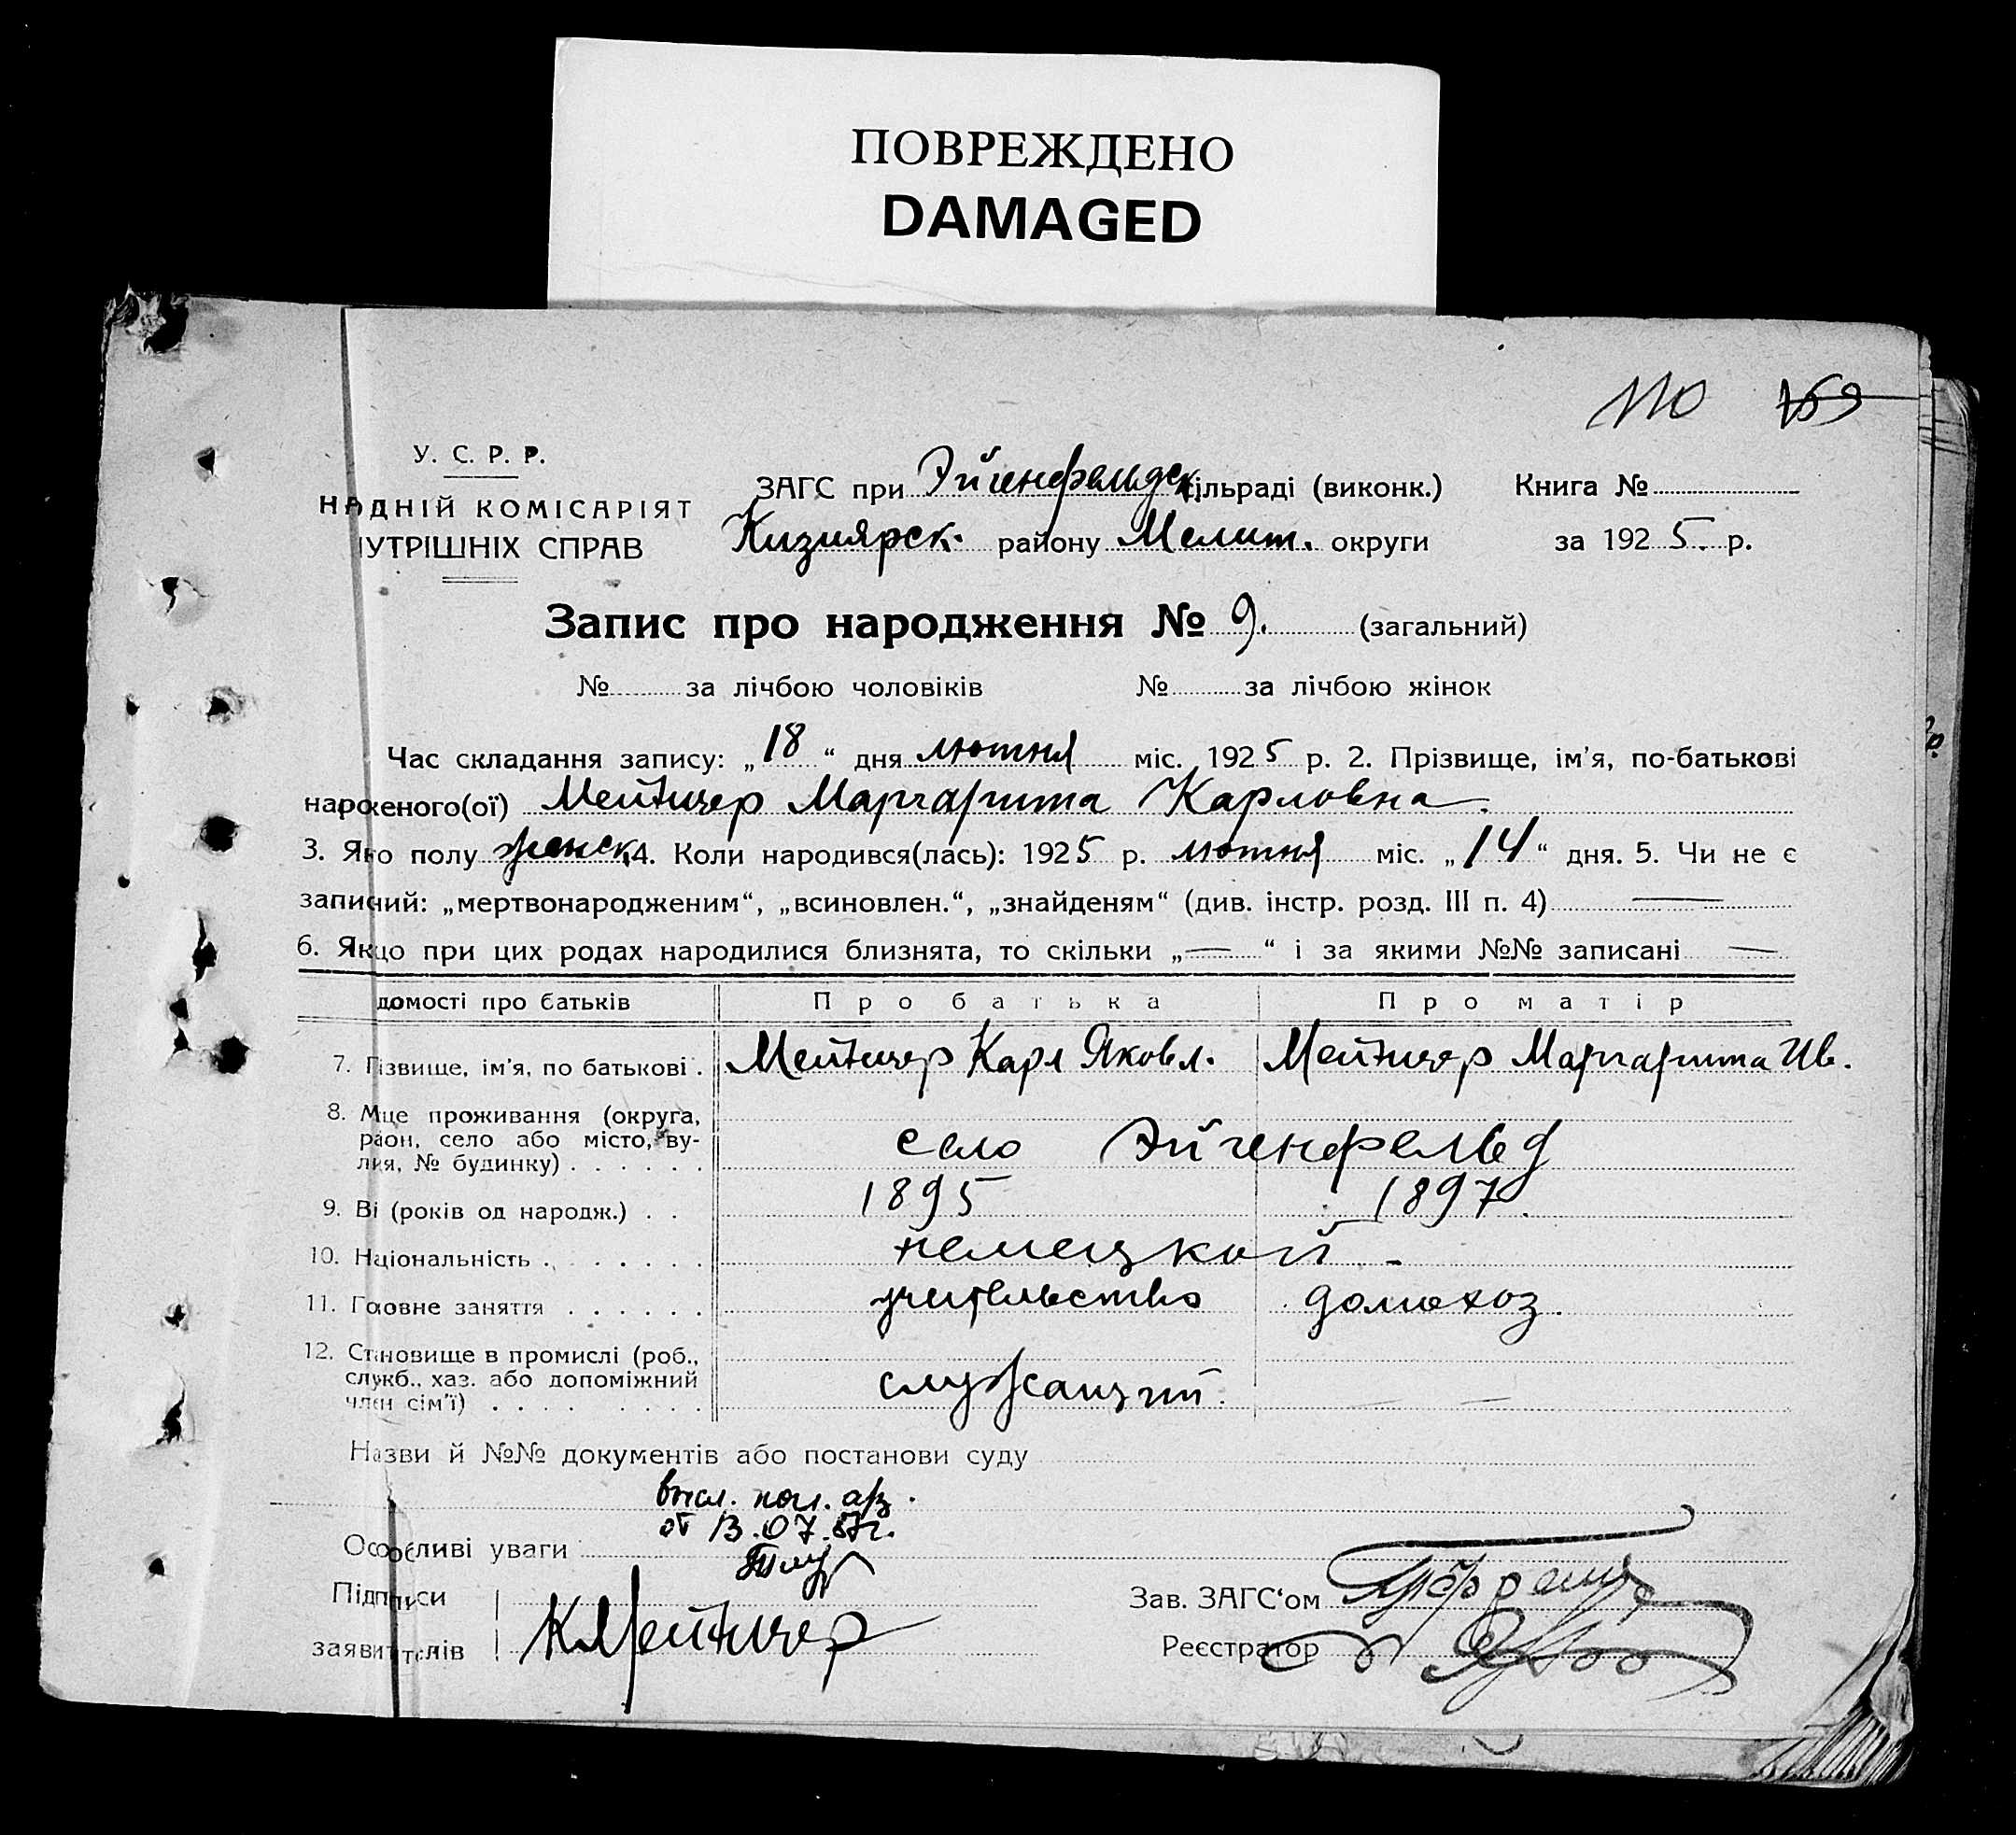 ПОВРЕЖДЕНО
DAMAGED
110 159
У. С. Р. Р.
НАДНІЙ КОМІСАРІЯТ
ІУТРІШНІХ СПРАВ
ЗАГС при Эйгенфельдск. ільраді (виконк.) Книга №
Кизиярск. району Мелит. округи за 1925. р.
Запис про народження № 9. (загальний)
№ за лічбою чоловіків № за лічбою жінок
Час складання запису: „18“ дня лютня міс. 1925 р. 2. Прізвище, ім'я, по-батькові
нароженого(ої) Мейтцер Маргарита Карловна.
3. Яко полу женск. 4. Коли народився(лась): 1925 р. лютня міс. „14“ дня. 5. Чи не є
записий: „мертвонародженим“, „всиновлен.“, „знайденям“ (див. інстр. розд. III п. 4) —
6. Якцо при цих родах народилися близнята, то скільки „—“ і за якими №№ записані —
домості про батьків Про батька Про матір
7. Пізвище, ім'я, по батькові . Мейтцер Карл Яковл. Мейтцер Маргарита Ив.
8. Мце проживання (округа,
раон, село або місто, ву-
лия, № будинку) . . . . . . село Эйгенфельд
9. Ві (років од народж.) . . 1895 1897.
10. Національність . . . . . . . немецкой -
11. Говне заняття . . . . . . учительство домохоз.
12. Становище в промислі (роб.,
служб., хаз. або допоміжний
член сім'ї) . . . . . . . . служащий. —
Назви й №№ документів або постанови суду
высл. пов.
от 13.07.87г.
Особливі уваги
Підписи
заявителів КМейтцер
Зав. ЗАГС'ом
Реєстратор